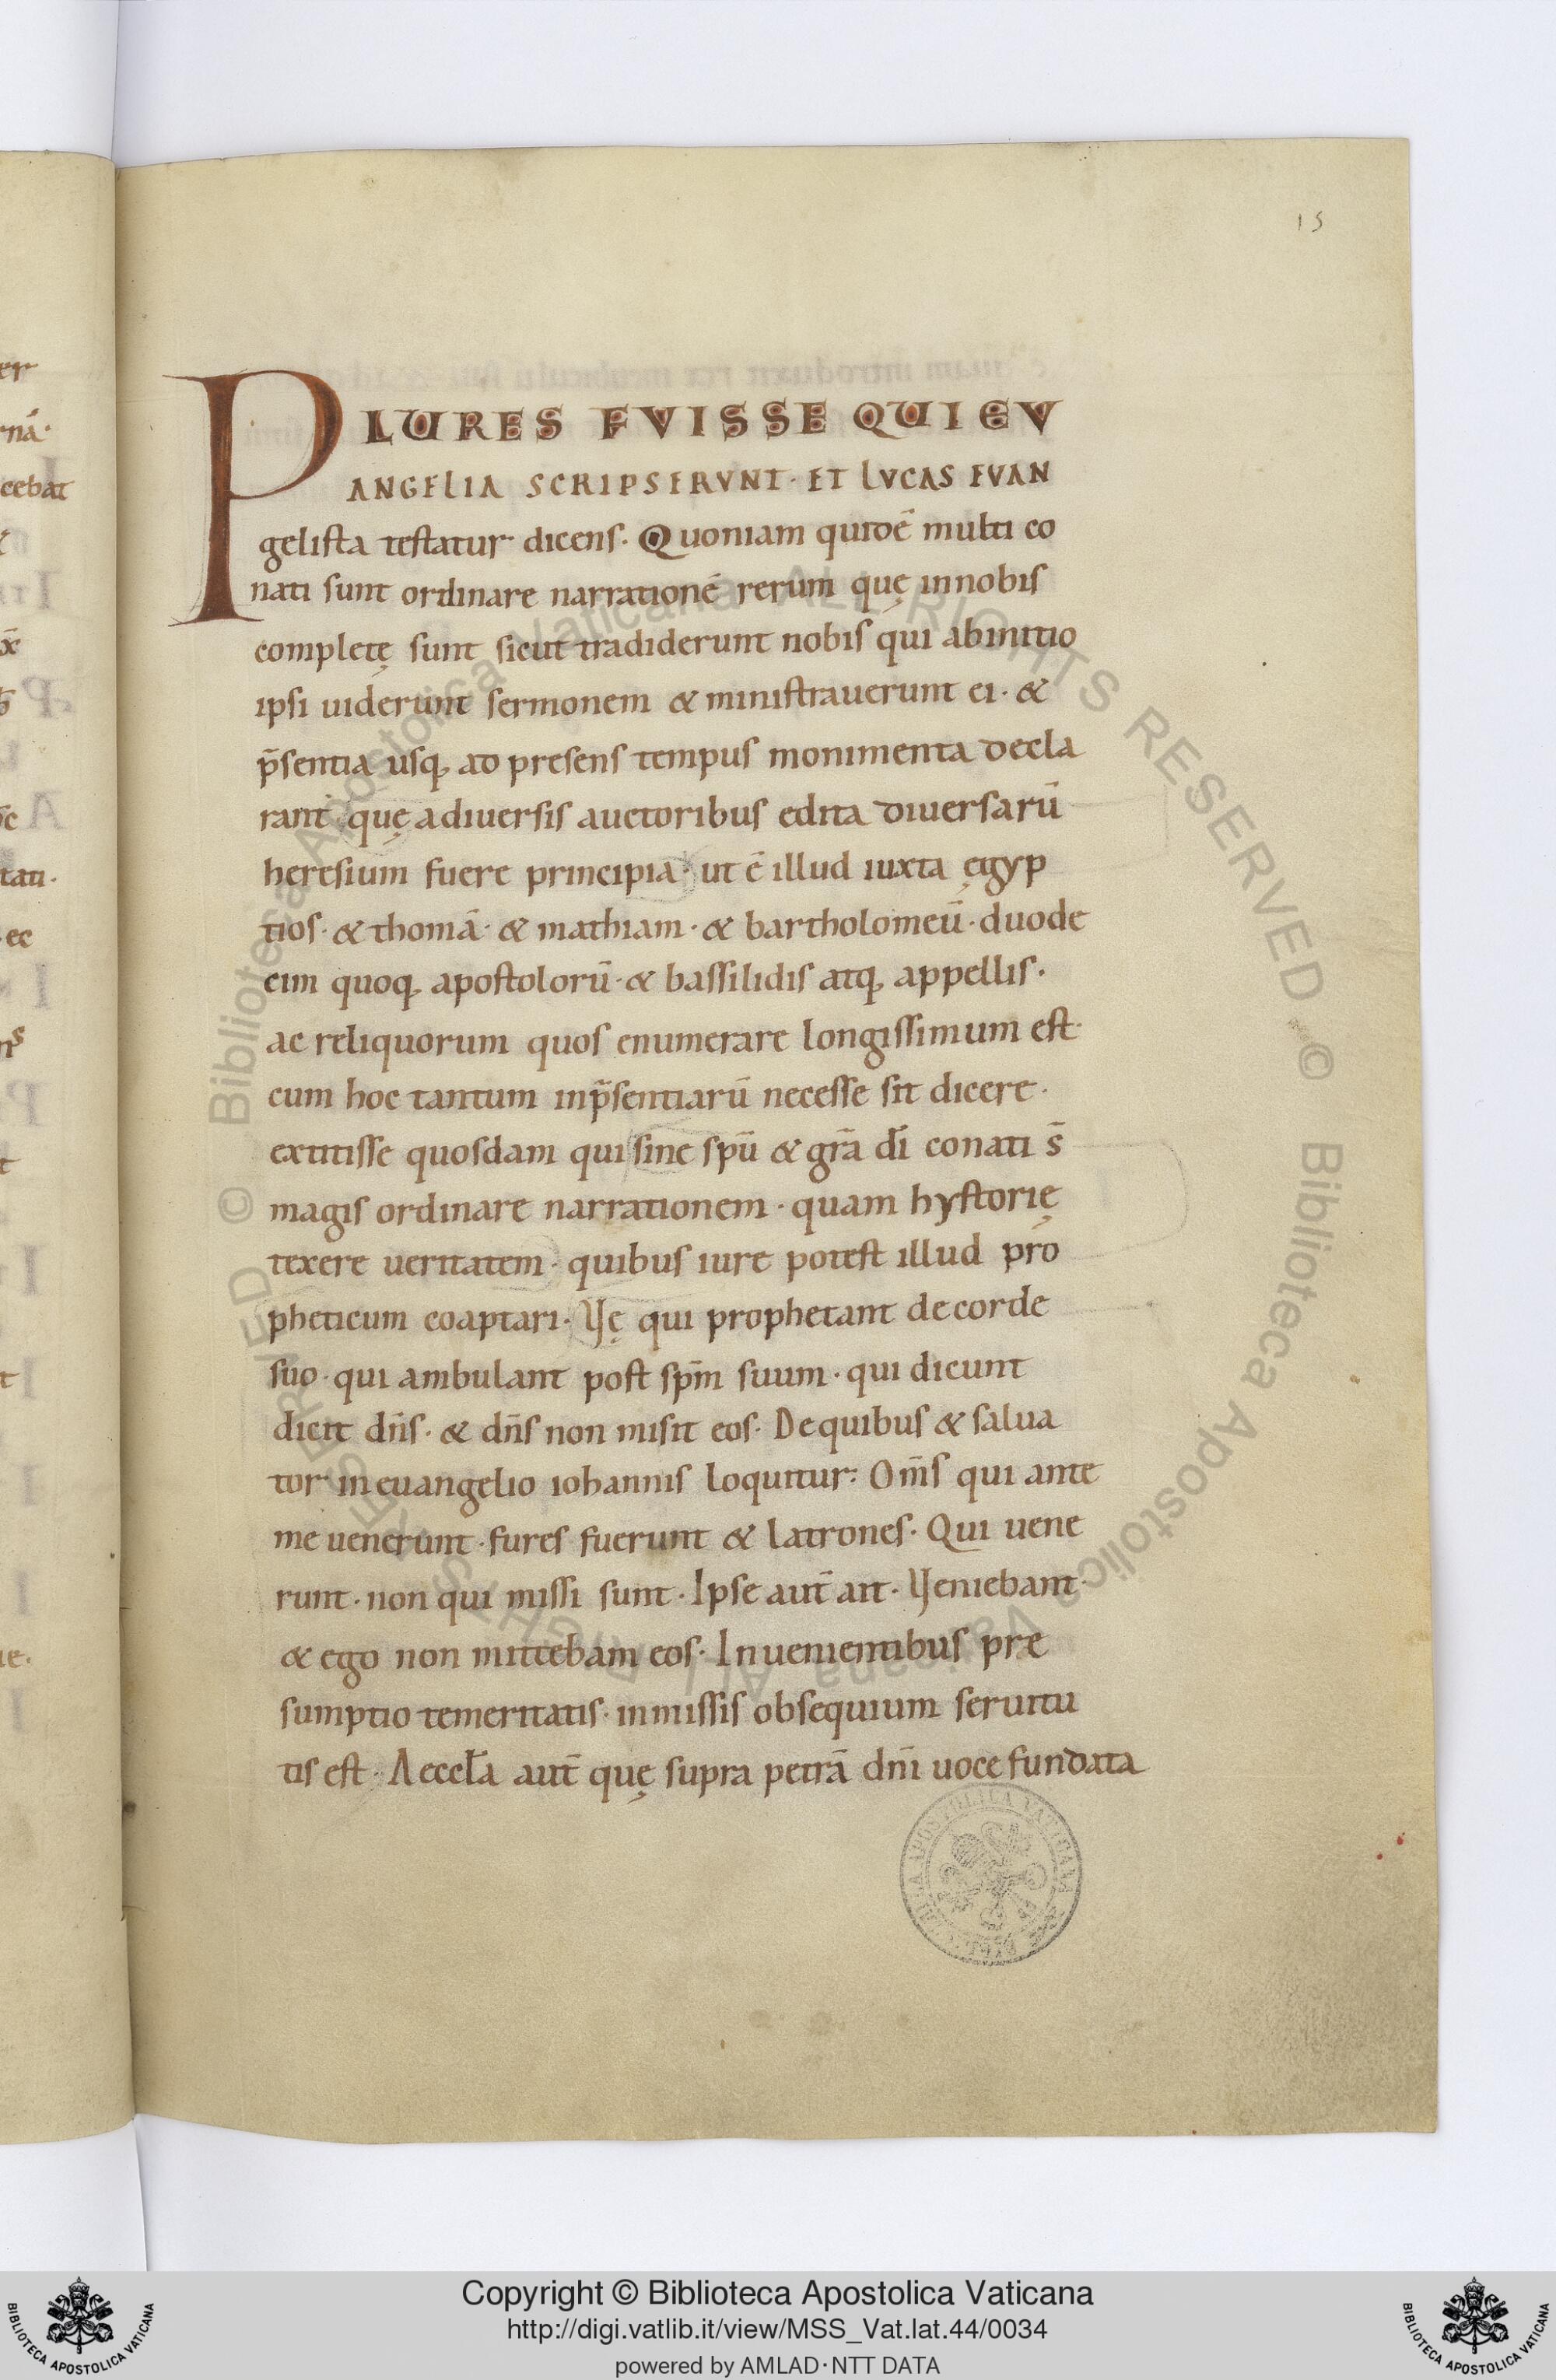 15
PLURES FVISSE QUI EV
ANGELIA SCRIPSERVNT· ET LVCAS EVAN
gelista testatur dicens. Quoniam quidē multi co
nati sunt ordinare narrationē rerum quę innobis
completę sunt sicut tradiderunt nobis qui abinitio
ipsi uiderunt sermonem & ministrauerunt ei· &
p̄sentia usq; ad presens tempus monimenta decla
rant quę adiuersis auctoribus edita diuersarū
heresium fuere principia· ut ē illud iuxta ęgyp
tios· & thomā· & mathiam· & bartholomeū· duode
cim quoq; apostolorū· & bassilidis atq; appellis·
ac reliquorum quos enumerare longissimum est·
cum hoc tantum inp̄sentiarū necesse sit dicere·
extitisse quosdam qui sine spū & grā dī conati s̄
magis ordinare narrationem· quam hystorię
texere ueritatem· quibus iure potest illud pro
pheticum coaptari· Vę qui prophetant decorde
suo· qui ambulant post spm̄ suum· qui dicunt
dicit dn̄s· & dn̄s non misit eos· Dequibus & salua
tor in euangelio iohannis loquitur: Om̄s qui ante
me uenerunt· fures fuerunt & latrones· Qui uene
runt· non qui missi sunt· Ipse aut̄ ait· Veniebant·
& ego non mittebam eos· Inuenientibus pre
sumptio temeritatis· inmissis obsequium seruitu
tis est· Aeccl̄a aut̄ quę supra petrā dn̄i uoce fundata
Copyright © Biblioteca Apostolica Vaticana
http://digi.vatlib.it/view/MSS_Vat.lat.44/0034
powered by AMLAD·NTT DATA
BIBLIOTECA APOSTOLICA VATICANA
BIBLIOTECA APOSTOLICA VATICANA
© Biblioteca Apostolica Vaticana ALL RIGHTS RESERVED © Biblioteca Apostolica Vaticana ALL RIGHTS RESERVED